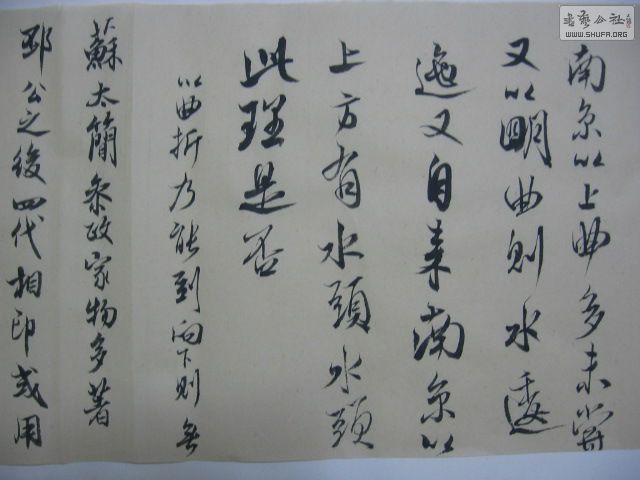 書藝公社
WWW.SHUFA.ORG
南京以上曲多未嘗
又以明曲則水逶
迤又自来南京以
上方有水頭水頭
此理是否
以曲折乃能到向下則無
蘇太簡參政家物多著
邳公之後四代相印或用